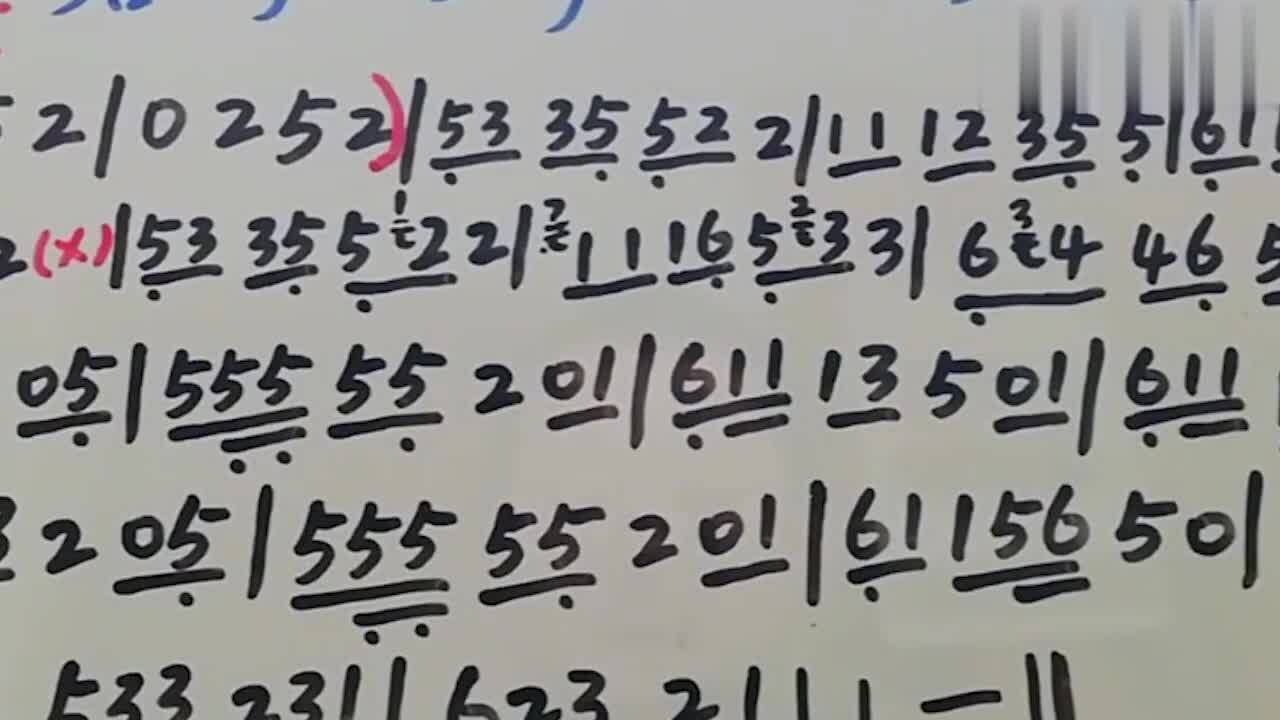 5 2 | 0 2 5 2) | 53 35 52 2 | 11 12 35 5 | 61
2 (x) | 53 35 5 2 2 | 11 16 5 3 3 | 6 4 46 5
05 | 555 55 2 01 | 611 13 5 01 | 611
3 2 05 | 555 55 2 01 | 61 156 5 0 |
533 231 | 623 211 1 — ||